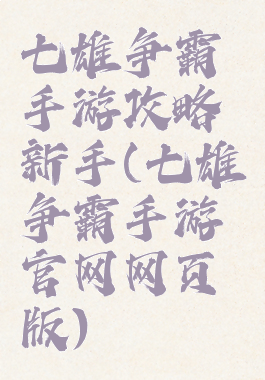 七雄争霸
手游攻略
新手(七雄
争霸手游
官网网页
版)